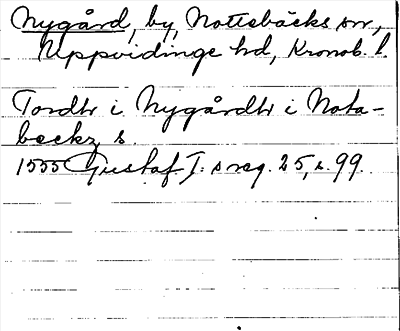 Nygård, by, Nottebäcks sn,
Uppvidinge hd, Kronob. l.
Tordh i Nygårdh i Nota-
beckz s.
1555 Gustaf I:s reg. 25, s. 99.